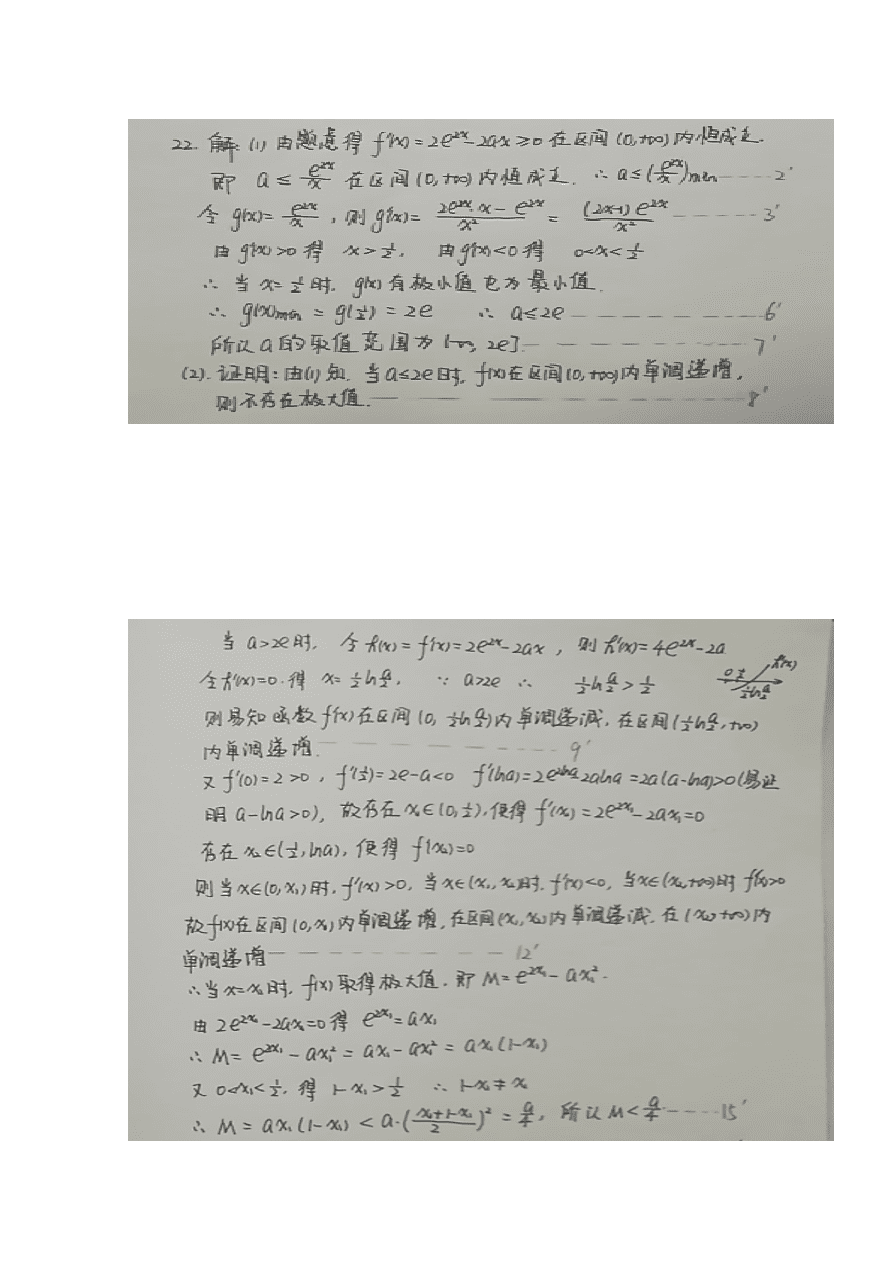 22. 解: (1) 由题意得 f'(x)=2e^{2x}-2ax≥0 在区间 (0,+∞) 内恒成立.
即 a ≤ \frac{e^{2x}}{x} 在区间 (0,+∞) 内恒成立. ∴ a≤(\frac{e^{2x}}{x})min ----- 2'
令 g(x)= \frac{e^{2x}}{x}, 则 g'(x)= \frac{2e^{2x}·x-e^{2x}}{x^2} = \frac{(2x-1)e^{2x}}{x^2} ------ 3'
由 g'(x)>0 得 x>\frac{1}{2}, 由 g'(x)<0 得 0<x<\frac{1}{2}
∴ 当 x=\frac{1}{2} 时. g(x) 有极小值也为最小值.
∴ g(x)min = g(\frac{1}{2}) = 2e ∴ a≤2e ------ 6'
所以 a 的取值范围为 (-∞, 2e]. ------ 7'
(2). 证明: 由(1)知. 当 a≤2e 时, f(x) 在区间 (0,+∞) 内单调递增,
则不存在极大值. ------ 8'
当 a>2e 时, 令 h(x)=f'(x)=2e^{2x}-2ax, 则 h'(x)=4e^{2x}-2a
令 h'(x)=0. 得 x=\frac{1}{2}ln\frac{a}{2}, ∵ a>2e ∴ \frac{1}{2}ln\frac{a}{2}>\frac{1}{2}
h'(x)
0 \frac{1}{2}
\frac{1}{2}ln\frac{a}{2}
则易知函数 f'(x) 在区间 (0, \frac{1}{2}ln\frac{a}{2}) 内单调递减, 在区间 (\frac{1}{2}ln\frac{a}{2}, +∞)
内单调递增. ------ 9'
又 f'(0)=2>0, f'(\frac{1}{2})=2e-a<0 f'(lna)=2e^{2lna}-2alna=2a(a-lna)>0 (易证
明 a-lna>0), 故存在 x₁∈(0,\frac{1}{2}), 使得 f'(x₁)=2e^{2x₁}-2ax₁=0
存在 x₂∈(\frac{1}{2},lna), 使得 f'(x₂)=0
则当 x∈(0,x₁) 时, f'(x)>0, 当 x∈(x₁,x₂) 时, f'(x)<0, 当 x∈(x₂,+∞) 时 f'(x)>0
故 f(x) 在区间 (0,x₁) 内单调递增, 在区间 (x₁,x₂) 内单调递减, 在 (x₂,+∞) 内
单调递增 ------ 12'
∴ 当 x=x₁ 时, f(x) 取得极大值, 即 M=e^{2x₁}-ax₁².
由 2e^{2x₁}-2ax₁=0 得 e^{2x₁}=ax₁
∴ M= e^{2x₁}-ax₁² = ax₁-ax₁² = ax₁(1-x₁)
又 0<x₁<\frac{1}{2}, 得 1-x₁>\frac{1}{2} ∴ 1-x₁≠x₁
∴ M = ax₁(1-x₁) < a·(\frac{x₁+1-x₁}{2})² = \frac{a}{4}, 所以 M<\frac{a}{4}. ---- 15'